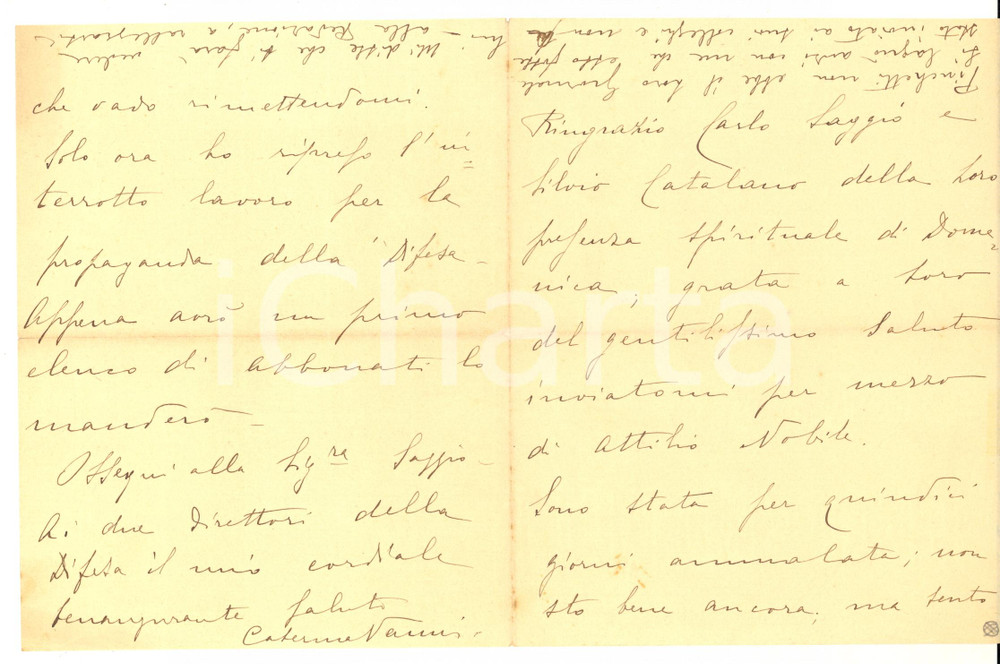 Ringrazio Carlo Saggio e
Silvio Catalano della loro
presenza spirituale di Dome=
nica, grata a loro
del gentilissimo saluto
inviatomi per mezzo
di Attilio Nobile.
Sono stata per quindici
giorni ammalata; non
sto bene ancora, ma sento
che vado rimettendomi.
Solo ora ho ripreso l'in=
terrotto lavoro per la
propaganda della Difesa -
Appena avrò un primo
elenco di abbonati lo
manderò -
Ossequi alla Sig.ra Saggio -
Ai due Direttori della
Difesa il mio cordiale
benaugurante saluto
Caterina Nanni -
Pinchetti non ebbe il loro Giornale
Si lagnò anzi con me che esso fosse
stato inviato ai suoi colleghi e non a
lui - Mi disse che si farà vedere
alla Redazione, a
iCharta